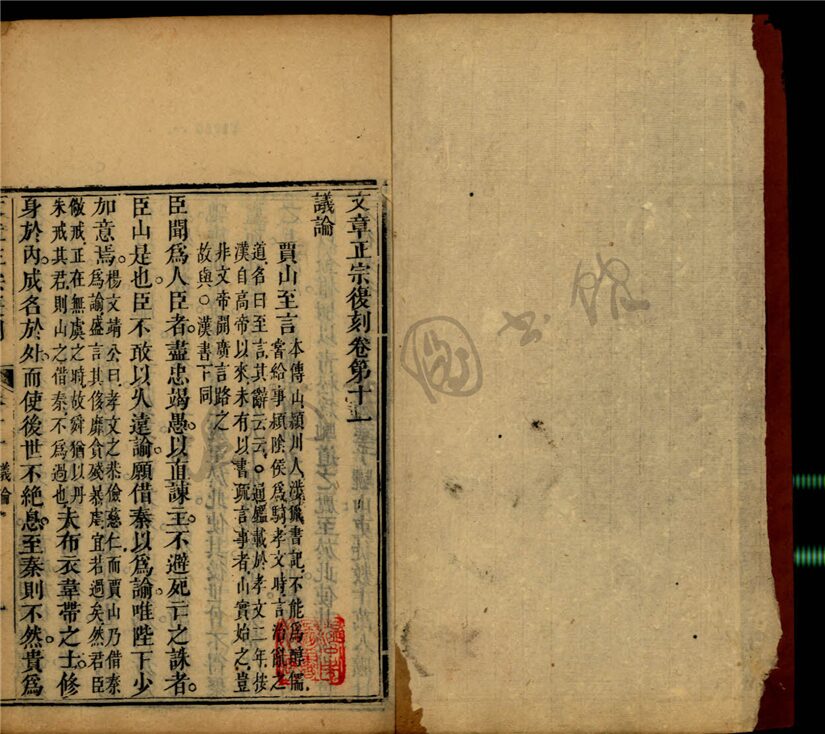 文章正宗復刻卷第十一
議論
賈山至言
本傳山潁川人涉獵書記不能爲醇儒
嘗給事潁陰侯爲騎孝文時言治亂之
道名曰至言其辭云云○通鑑載於孝文二年按
漢自高帝以來未有以書疏言事者山實始之豈
非文帝開廣言路之
故與○漢書下同
臣聞爲人臣者盡忠竭愚以直諫主不避死亡之誅者
臣山是也臣不敢以久遠諭願借秦以爲諭唯陛下少
加意焉
楊文靖公曰孝文之恭儉慈仁而賈山乃借秦
爲諭盛言其侈靡貪殘暴虐宜若過矣然君臣
儆戒正在無虞之時故舜猶以丹
朱戒其君則山之借秦不爲過也
夫布衣韋帶之士修
身於內成名於外而使後世不絕息至秦則不然貴爲
議論